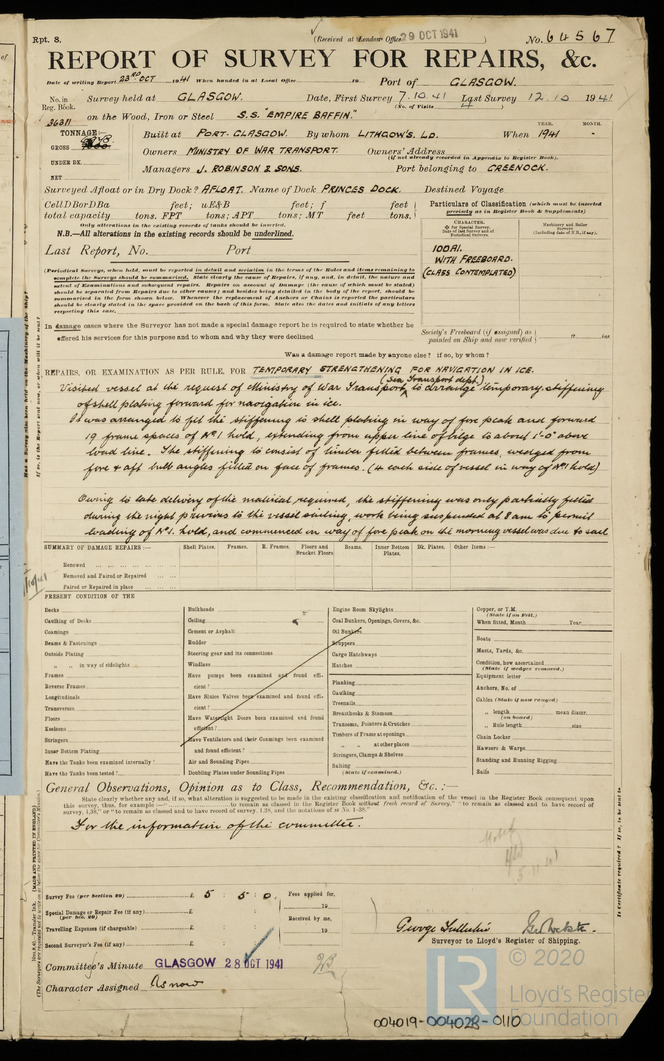 Rpt. 8.
(Received at London Office 29 OCT 1941 )
No. 64567
REPORT OF SURVEY FOR REPAIRS, &c.
Date of writing Report 23RD OCT 1941 When handed in at Local Office 19 Port of GLASGOW.
No. in Reg. Book. Survey held at GLASGOW. Date, First Survey 7.10.41 Last Survey 12.10 1941
(No. of Visits 4 )
36311 on the Wood, Iron or Steel S.S. "EMPIRE BAFFIN."
TONNAGE:- Built at PORT. GLASGOW. By whom LITHGOWS. LD. When YEAR. 1941 MONTH. -
GROSS
Owners MINISTRY OF WAR TRANSPORT. Owners' Address
(if not already recorded in Appendix to Register Book).
UNDER DK.
NET
Managers J. ROBINSON & SONS. Port belonging to GREENOCK.
Surveyed Afloat or in Dry Dock? AFLOAT. Name of Dock PRINCES DOCK. Destined Voyage
CellDBorDBa feet; uE&B feet; f feet
total capacity tons. FPT tons; APT tons; MT feet tons.
Only alterations in the existing records of tanks should be inserted.
N.B.—All alterations in the existing records should be underlined.
Particulars of Classification (which must be inserted precisely as in Register Book & Supplements)
100A1.
WITH FREEBOARD.
(CLASS CONTEMPLATED)
Last Report, No. Port
(Periodical Surveys, when held, must be reported in detail and seriatim in the terms of the Rules and items remaining to complete the Surveys should be summarised.
In damage cases where the Surveyor has not made a special damage report he is required to state whether he
offered his services for this purpose and to whom and why they were declined
Society's Freeboard (if assigned) as painted on Ship and now verified ft. ins.
Was a damage report made by anyone else? if so, by whom?
REPAIRS, OR EXAMINATION AS PER RULE, FOR TEMPORARY STRENGTHENING FOR NAVIGATION IN ICE.
Visited vessel at the request of Ministry of War Transport (Sea Transport dept.) to arrange temporary stiffening
of shell plating forward for navigation in ice.
It was arranged to fit the stiffening to shell plating in way of fore peak and forward
19 frame spaces of No 1 hold, extending from upper line of bilge to about 1'-0" above
load line. The stiffening to consist of timber fitted between frames, wedged from
fore & aft bulb angles fitted on face of frames. (4 each side of vessel in way of No 1 hold)
Owing to late delivery of the material required, the stiffening was only partially fitted
during the night previous to the vessel sailing, work being suspended at 8 am to permit
loading of No 1. hold, and commenced in way of fore peak on the morning vessel was due to sail
SUMMARY OF DAMAGE REPAIRS:— Shell Plates. Frames. R. Frames. Floors and Bracket Floors Beams. Inner Bottom Plates. Dk. Plates. Other Items:—
Renewed
Removed and Faired or Repaired
Faired or Repaired in place
PRESENT CONDITION OF THE
Decks
Caulking of Decks
Coamings
Beams & Fastenings
Outside Plating
" " in way of sidelights
Frames
Reverse Frames
Longitudinals
Transverses
Floors
Keelsons
Stringers
Inner Bottom Plating
Have the Tanks been examined internally?
Have the Tanks been tested?
Bulkheads
Ceiling
Cement or Asphalt
Rudder
Steering gear and its connections
Windlass
Have pumps been examined and found efficient?
Have Sluice Valves been examined and found efficient?
Have Watertight Doors been examined and found efficient?
Have Ventilators and their Coamings been examined and found efficient?
Air and Sounding Pipes
Doubling Plates under Sounding Pipes
Engine Room Skylights
Coal Bunkers, Openings, Covers, &c.
Oil Bunkers
Scuppers
Cargo Hatchways
Hatches
Planking
Caulking
Treenails
Breasthooks & Stemson
Transoms, Pointers & Crutches
Timbers of Frame at openings
" " at other places
Stringers, Clamps & Shelves
Salting
(State if examined.)
Copper, or Y.M.
(State if on Felt.)
When fitted, Month Year
Boats
Masts, Yards, &c.
Condition, how ascertained
(State if wedges removed.)
Equipment letter
Anchors, No. of
Cables (State if now ranged)
" length mean diamr.
(on board)
" Rule length size
Chain Locker
Hawsers & Warps
Standing and Running Rigging
Sails
General Observations, Opinion as to Class, Recommendation, &c. :—
State clearly whether any, and if so, what alteration is suggested to be made in the existing classification and notification of the vessel in the Register Book consequent upon
For the information of the committee.
Survey Fee (per Section 29) £ 5 : 5 : 0. Fees applied for, 19
Special Damage or Repair Fee (if any) £
(per Sec. 29) Received by me,
Travelling Expenses (if chargeable) £ 19
Second Surveyor's Fee (if any) £
Surveyor to Lloyd's Register of Shipping.
Committee's Minute GLASGOW 28 OCT 1941
Character Assigned As now
© 2020
LR
Lloyd's Register
Foundation
004019-004028-0110